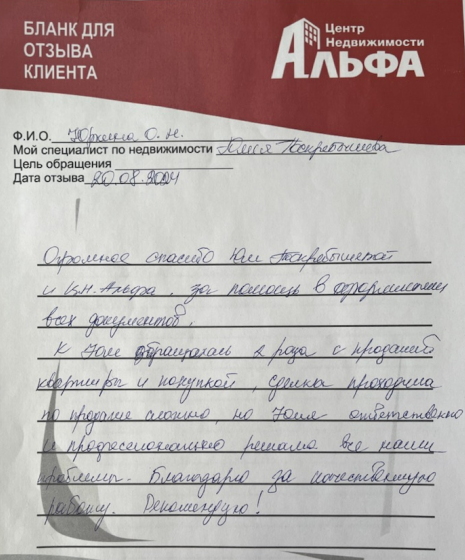 БЛАНК ДЛЯ
ОТЗЫВА
КЛИЕНТА
Центр
Недвижимости
АЛЬФА
Ф.И.О. Юркина О. Н.
Мой специалист по недвижимости Юлия Поскребышева
Цель обращения
Дата отзыва 20.08.2024
Огромное спасибо Юле Поскребышевой
и ц.н. Альфа, за помощь в оформлении
всех документов.
К Юле обращалась 2 раза с продажей
квартиры и покупкой, сделка проходила
по продаже сложно, но Юля ответственно
и профессионально решала все наши
проблемы. Благодарю за качественную
работу. Рекомендую!